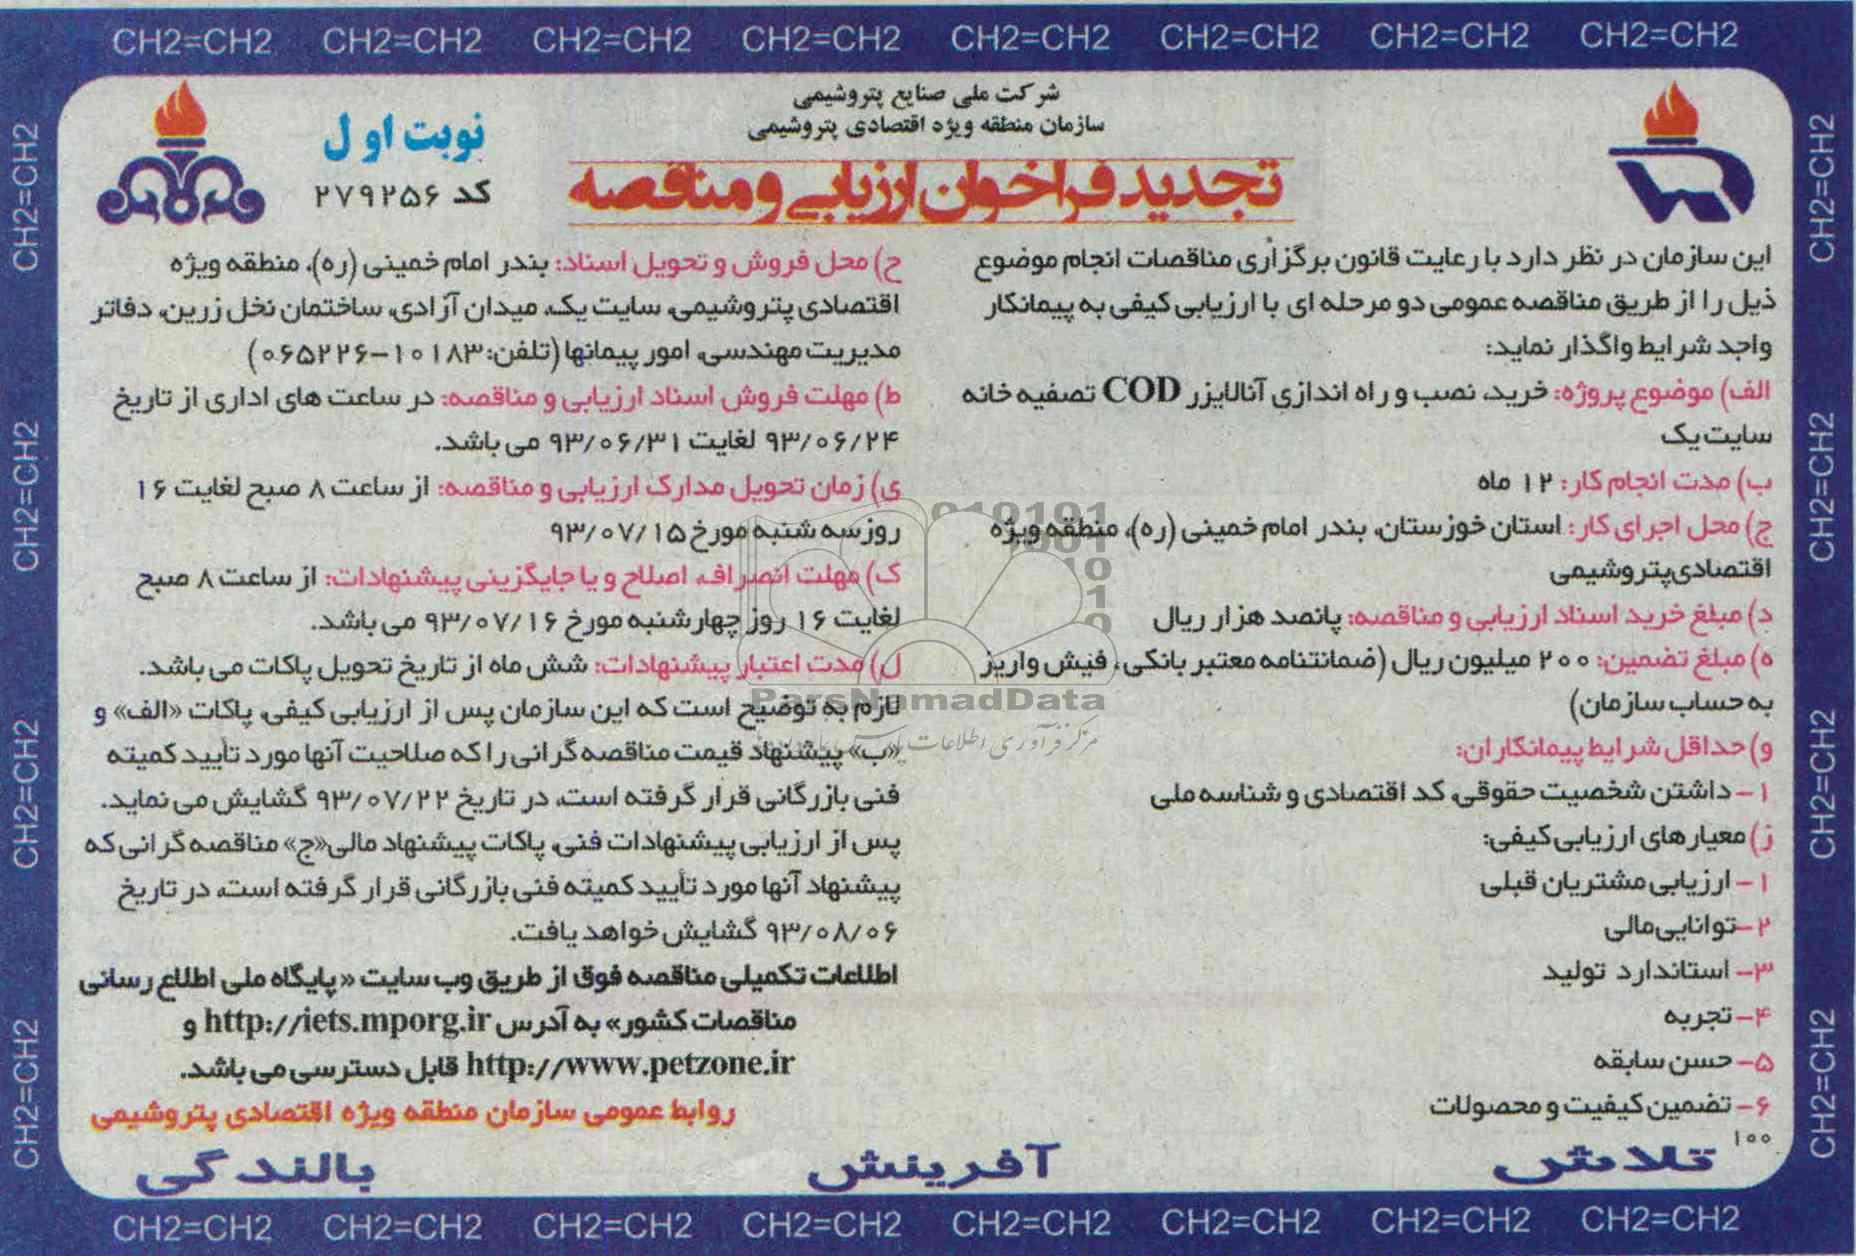 CH2=CH2 CH2=CH2 CH2=CH2 CH2=CH2 CH2=CH2 CH2=CH2 CH2=CH2 CH2=CH2
شرکت ملی صنایع پتروشیمی
سازمان منطقه ویژه اقتصادی پتروشیمی
تجدید فراخوان ارزیابی و مناقصه
نوبت اول
کد ۲۷۹۲۵۶
این سازمان در نظر دارد با رعایت قانون برگزاری مناقصات انجام موضوع
ذیل را از طریق مناقصه عمومی دو مرحله ای با ارزیابی کیفی به پیمانکار
واجد شرایط واگذار نماید:
الف) موضوع پروژه: خرید، نصب و راه اندازی آنالایزر COD تصفیه خانه
سایت یک
ب) مدت انجام کار: ۱۲ ماه
ج) محل اجرای کار: استان خوزستان، بندر امام خمینی (ره)، منطقه ویژه
اقتصادی پتروشیمی
د) مبلغ خرید اسناد ارزیابی و مناقصه: پانصد هزار ریال
ه) مبلغ تضمین: ۲۰۰ میلیون ریال (ضمانتنامه معتبر بانکی، فیش واریز
به حساب سازمان)
و) حداقل شرایط پیمانکاران:
۱- داشتن شخصیت حقوقی، کد اقتصادی و شناسه ملی
ز) معیارهای ارزیابی کیفی:
۱- ارزیابی مشتریان قبلی
۲- توانایی مالی
۳- استاندارد تولید
۴- تجربه
۵- حسن سابقه
۶- تضمین کیفیت و محصولات
۱۰۰
ح) محل فروش و تحویل اسناد: بندر امام خمینی (ره)، منطقه ویژه
اقتصادی پتروشیمی، سایت یک، میدان آزادی، ساختمان نخل زرین، دفاتر
مدیریت مهندسی، امور پیمانها (تلفن: ۱۰۱۸۳-۰۶۵۲۲۶)
ط) مهلت فروش اسناد ارزیابی و مناقصه: در ساعت های اداری از تاریخ
۹۳/۰۶/۲۴ لغایت ۹۳/۰۶/۳۱ می باشد.
ی) زمان تحویل مدارک ارزیابی و مناقصه: از ساعت ۸ صبح لغایت ۱۶
روز سه شنبه مورخ ۹۳/۰۷/۱۵
ک) مهلت انصراف، اصلاح و یا جایگزینی پیشنهادات: از ساعت ۸ صبح
لغایت ۱۶ روز چهارشنبه مورخ ۹۳/۰۷/۱۶ می باشد.
ل) مدت اعتبار پیشنهادات: شش ماه از تاریخ تحویل پاکات می باشد.
لازم به توضیح است که این سازمان پس از ارزیابی کیفی، پاکات «الف» و
«ب» پیشنهاد قیمت مناقصه گرانی را که صلاحیت آنها مورد تأیید کمیته
فنی بازرگانی قرار گرفته است، در تاریخ ۹۳/۰۷/۲۲ گشایش می نماید.
پس از ارزیابی پیشنهادات فنی، پاکات پیشنهاد مالی «ج» مناقصه گرانی که
پیشنهاد آنها مورد تأیید کمیته فنی بازرگانی قرار گرفته است، در تاریخ
۹۳/۰۸/۰۶ گشایش خواهد یافت.
اطلاعات تکمیلی مناقصه فوق از طریق وب سایت «پایگاه ملی اطلاع رسانی
مناقصات کشور» به آدرس http://iets.mporg.ir و
http://www.petzone.ir قابل دسترسی می باشد.
روابط عمومی سازمان منطقه ویژه اقتصادی پتروشیمی
تلاش آفرینش بالندگی
CH2=CH2 CH2=CH2 CH2=CH2 CH2=CH2 CH2=CH2 CH2=CH2 CH2=CH2 CH2=CH2
CH2=CH2 CH2=CH2 CH2=CH2 CH2=CH2
CH2=CH2 CH2=CH2 CH2=CH2 CH2=CH2
ParsNamadData